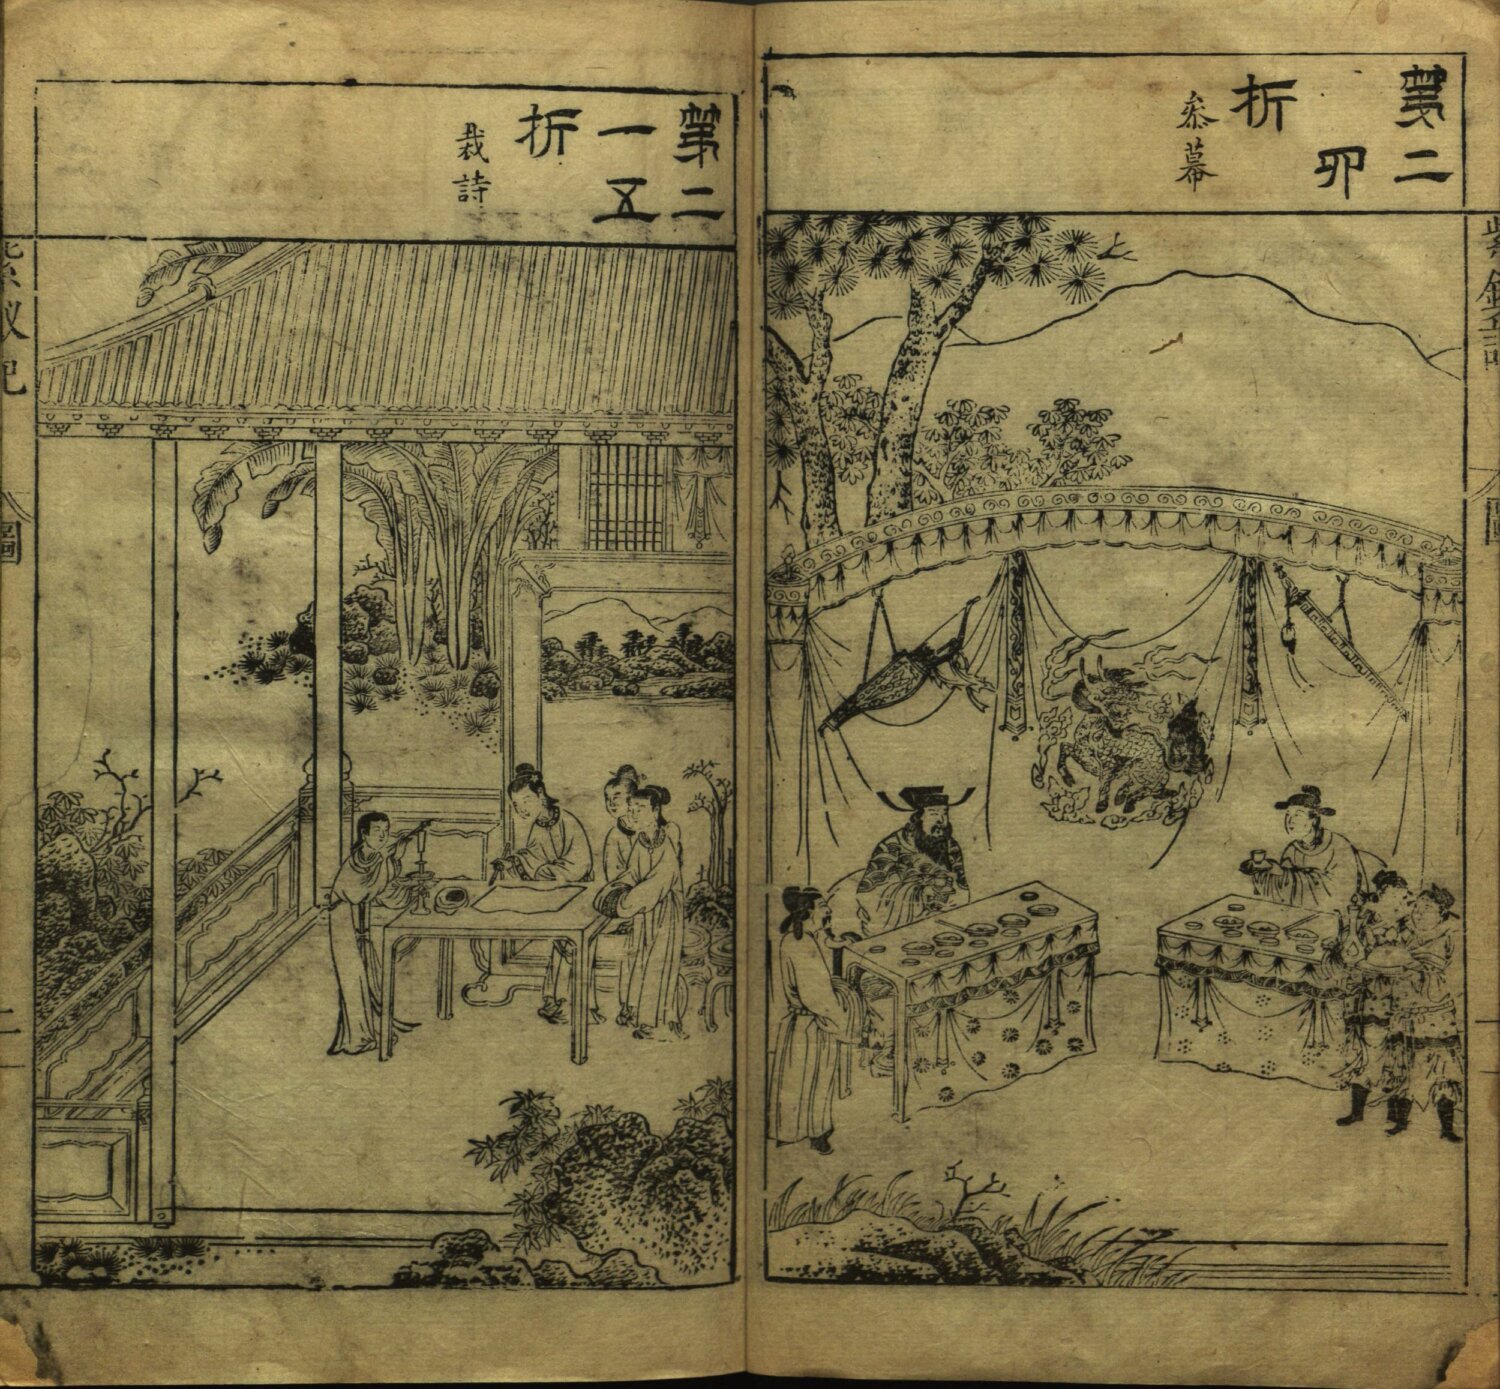 紫釵記
圖
第二
卯
折
叅幕
第二
一五
折
裁詩
紫釵記
圖
二